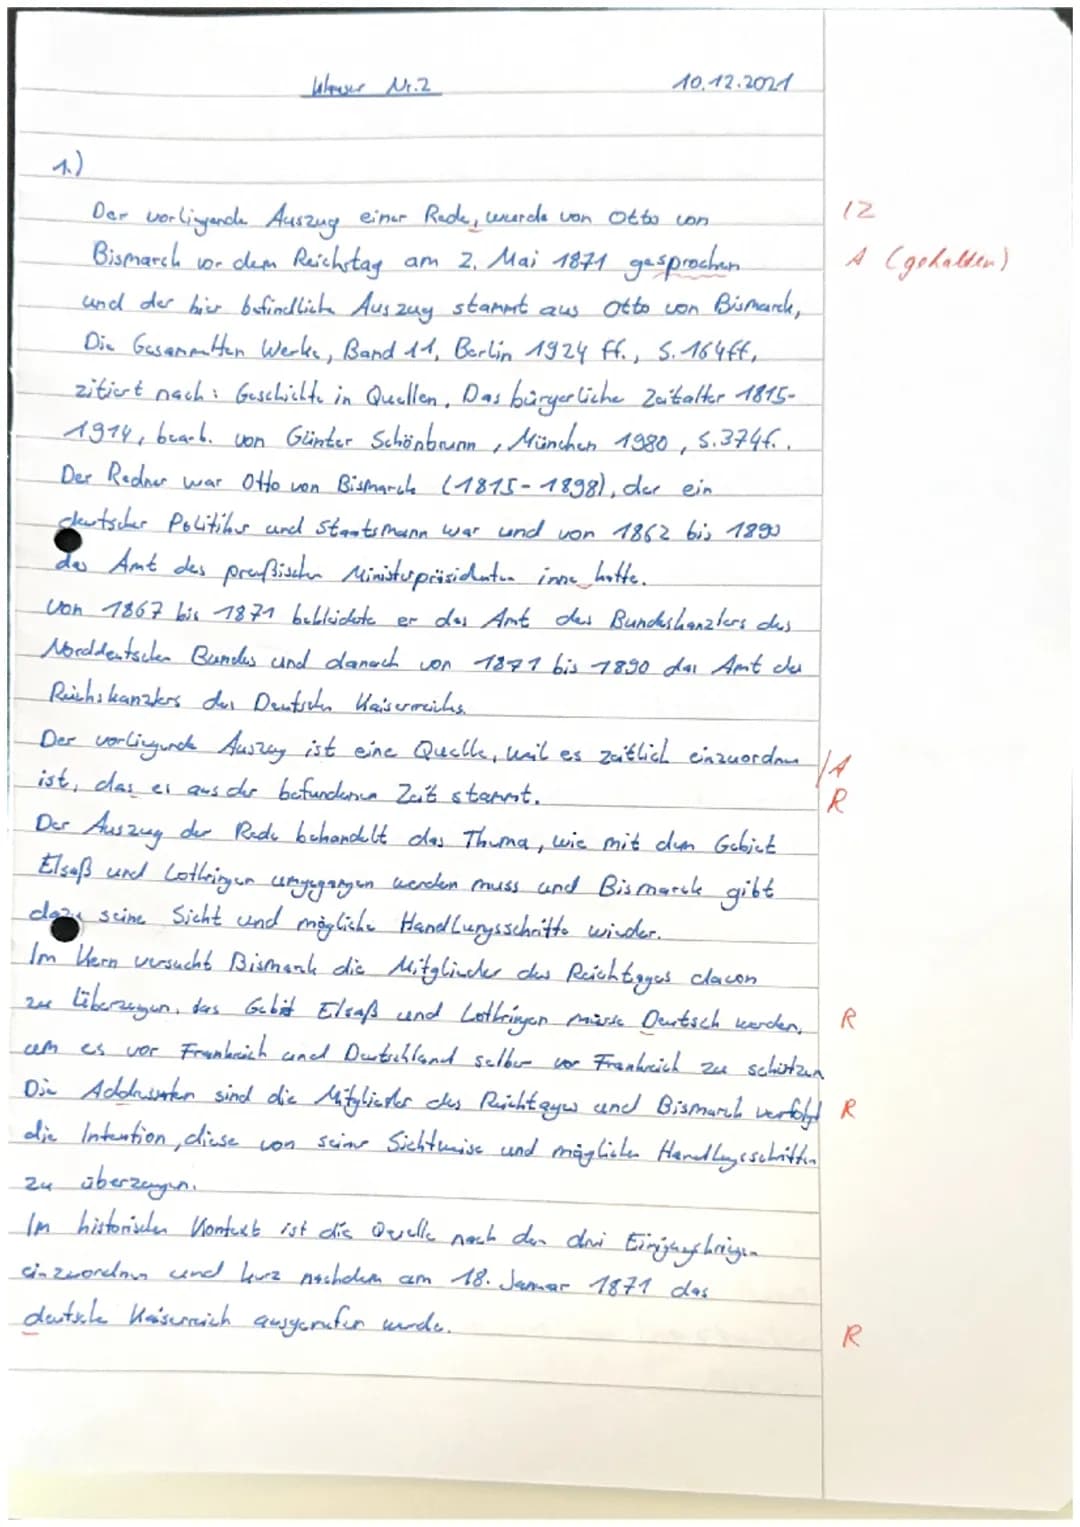 Klausur Nr.2 10.12.2021
1.)
Der vorliegende Auszug einer Rede, wurde von Otto von 12
Bismarck vor dem Reichstag am 2. Mai 1871 gesprochen A (gehalten)
und der hier befindliche Auszug stammt aus Otto von Bismarck,
Die Gesammelten Werke, Band 11, Berlin 1924 ff., S. 164ff,
zitiert nach: Geschichte in Quellen, Das bürgerliche Zeitalter 1815-
1914, bearb. von Günter Schönbrunn, München 1980, S.374f..
Der Redner war Otto von Bismarck (1815-1898), der ein
deutscher Politiker und Staatsmann war und von 1862 bis 1890
das Amt des preußischen Ministerpräsidenten inne hatte.
Von 1867 bis 1871 bekleidete er das Amt des Bundeskanzlers des
Norddeutschen Bundes und danach von 1871 bis 1890 das Amt des
Reichskanzlers des Deutschen Kaiserreichs.
Der vorliegende Auszug ist eine Quelle, weil es zeitlich einzuordnen /A
ist, das es aus der befundenen Zeit stammt. R
Der Auszug der Rede behandelt das Thema, wie mit dem Gebiet
Elsaß und Lothringen umgegangen werden muss und Bismarck gibt
dazu seine Sicht und mögliche Handlungsschritte wieder.
Im Kern versucht Bismarck die Mitglieder des Reichtages davon
zu Überzeugen, das Gebiet Elsaß und Lothringen müsse Deutsch werden, R
um es vor Frankreich und Deutschland selber vor Frankreich zu schützen
Die Addressaten sind die Mitglieder des Reichtages und Bismarck verfolgt R
die Intention, diese von seiner Sichtweise und möglichen Handlungsschritten
zu überzeugen.
Im historischen Kontext ist die Quelle nach den drei Einigungskriegen
einzuordnen und kurz nachdem am 18. Januar 1871 das
deutsche Kaiserreich ausgerufen wurde. R